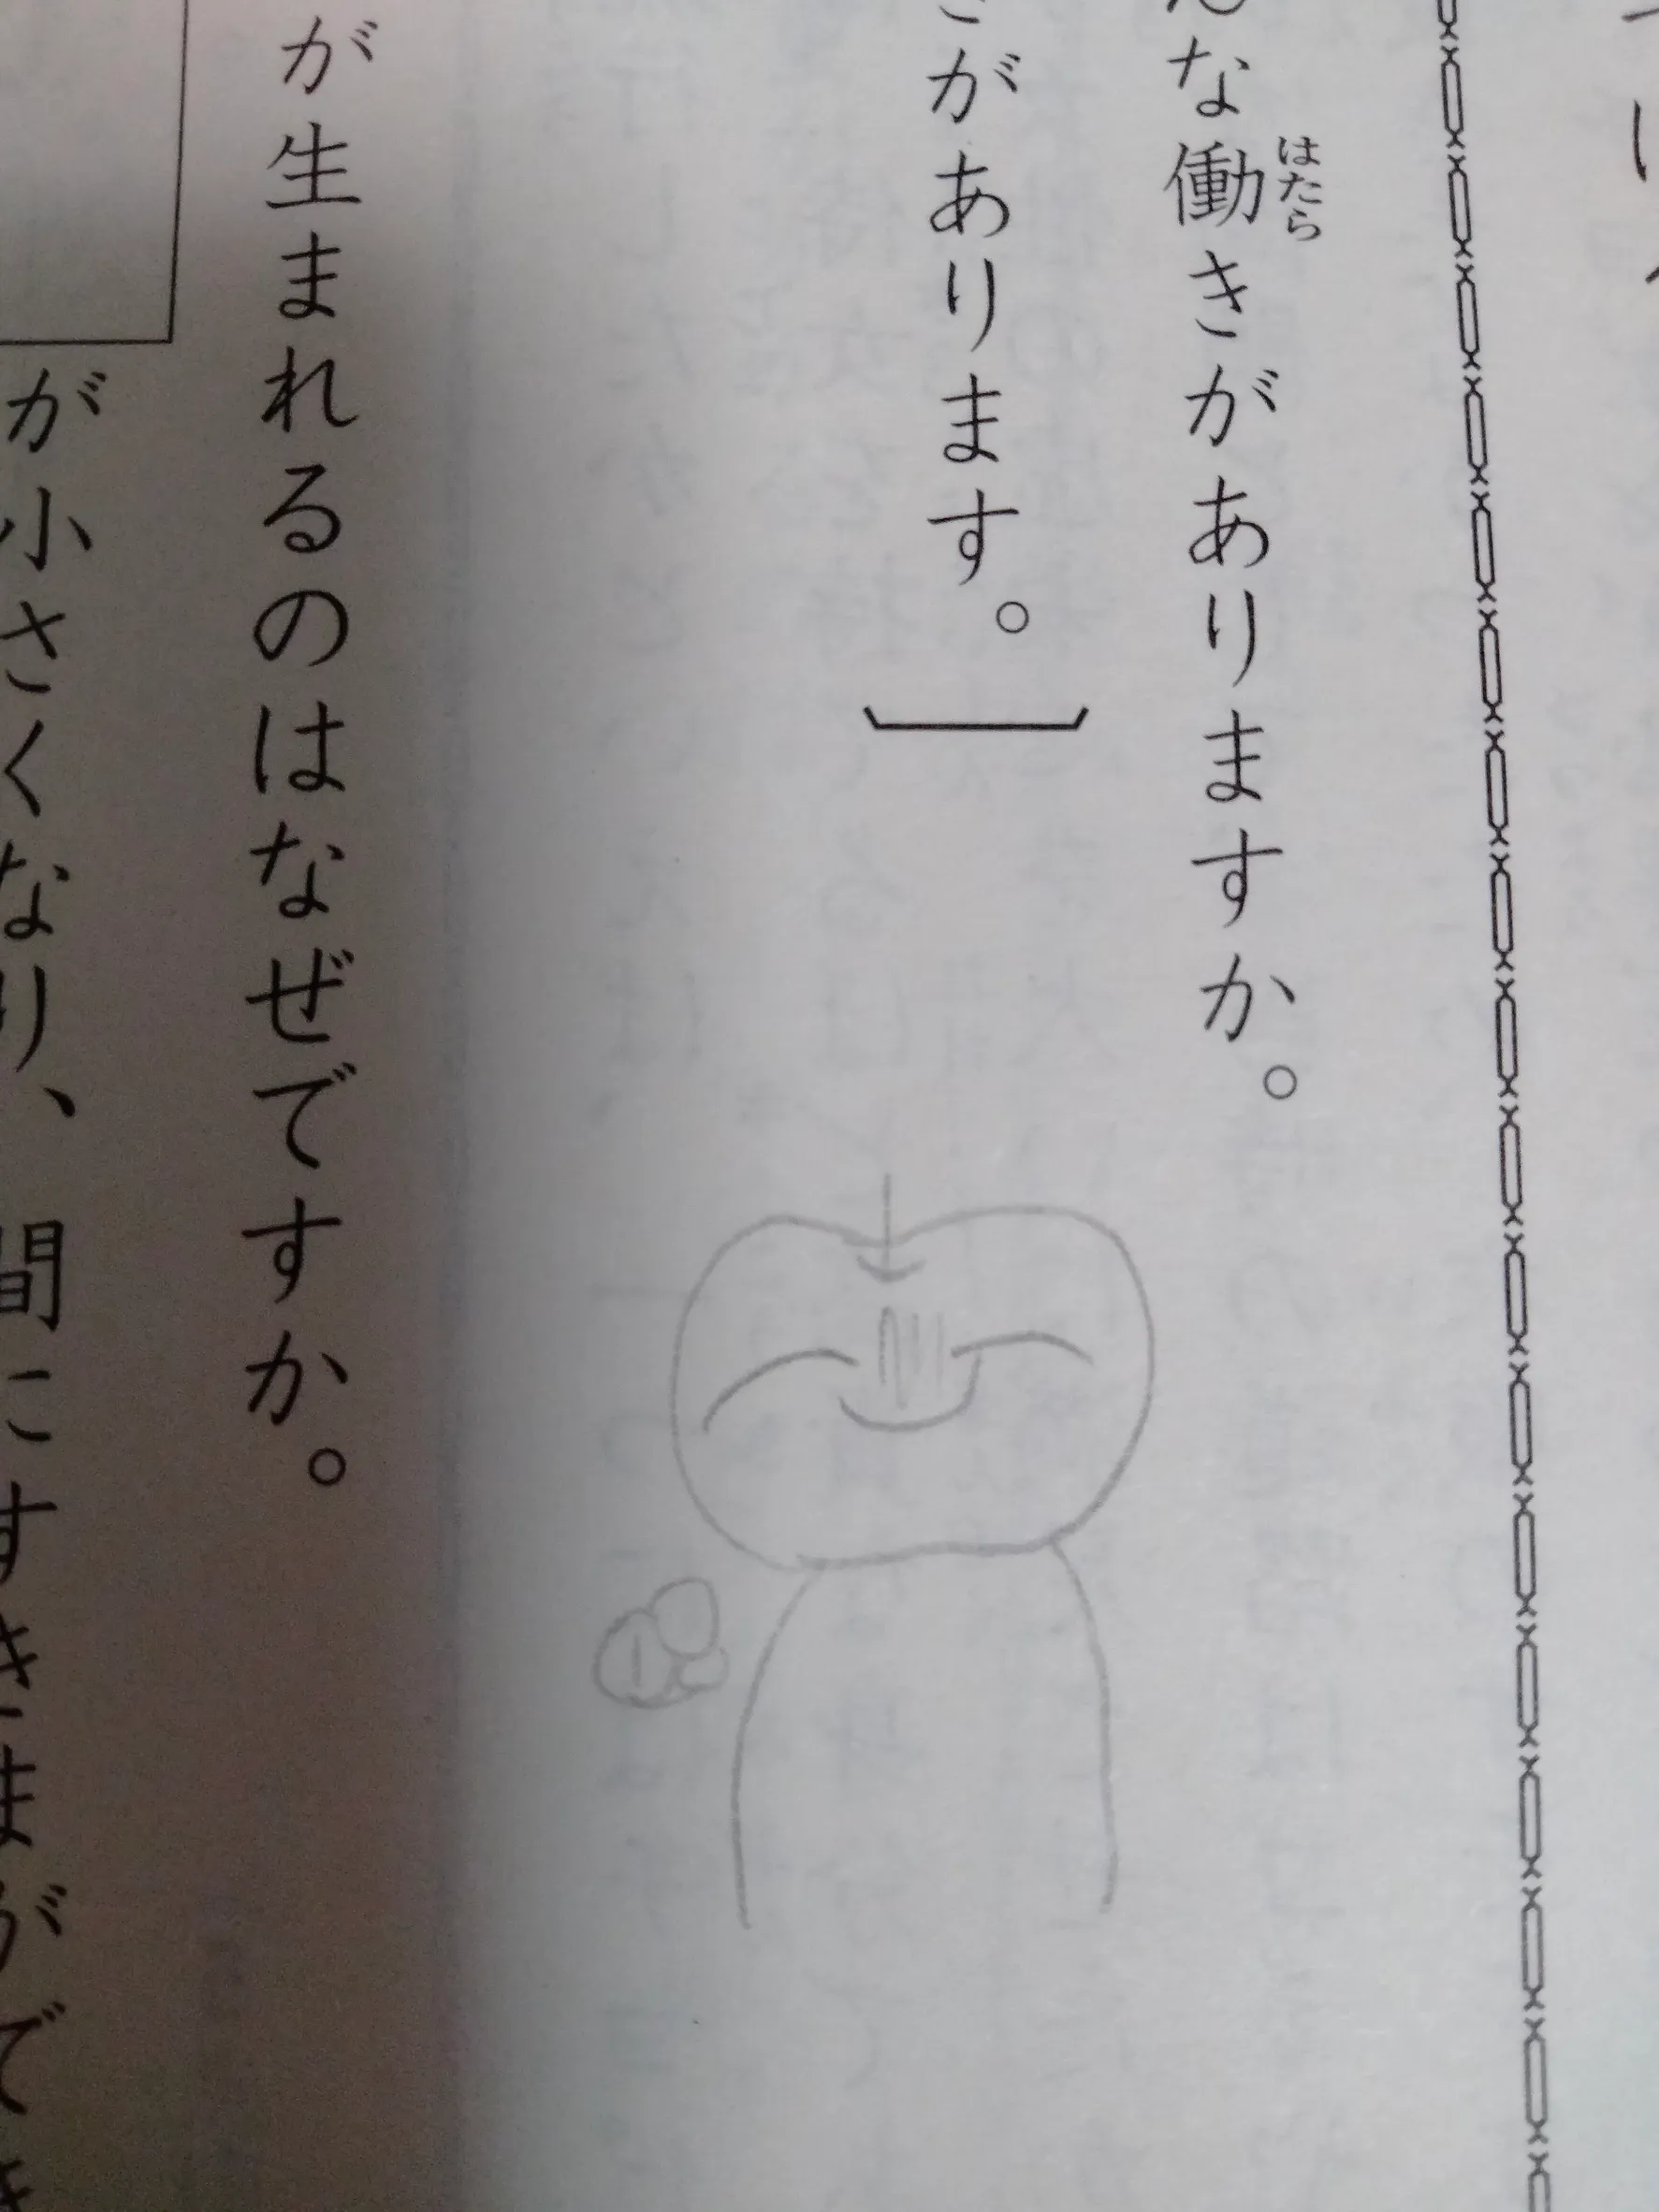 な働きがあります​か。
はたら
があります。
が生まれるのはなぜですか。
が小さくなり、間にすきまができ